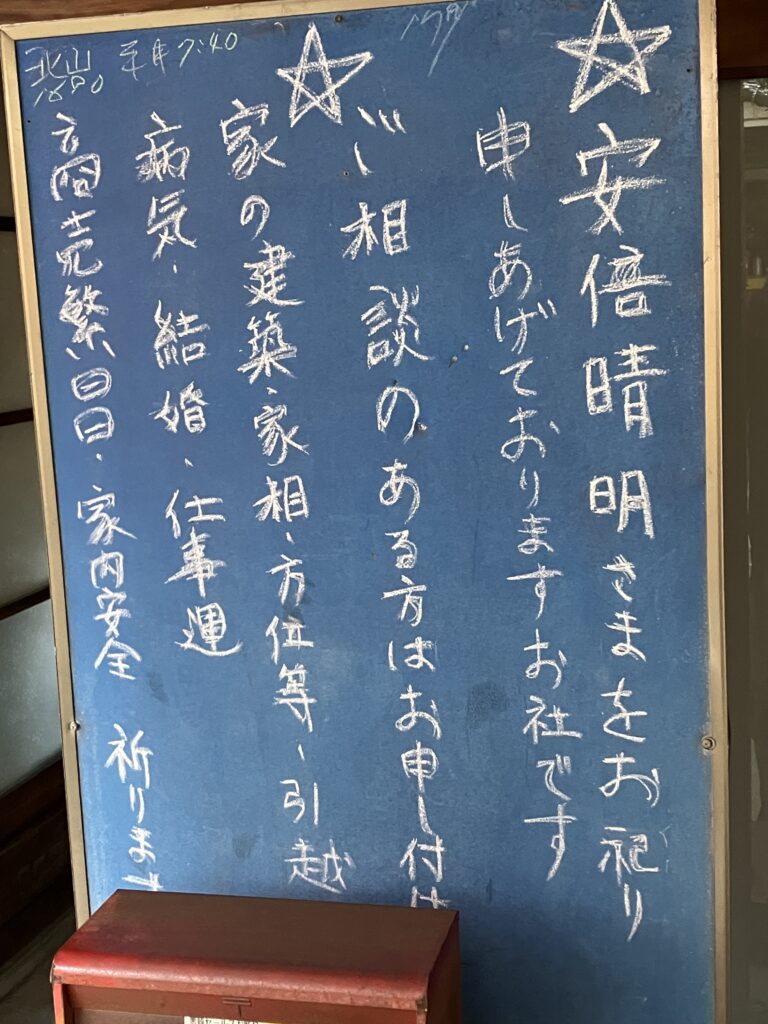 ☆安倍晴明さまをお祀り
申しあげておりますお社です
☆ご相談のある方はお申し付け
家の建築、家相、方位等、引越
病気、結婚、仕事運
商売繁昌、家内安全 祈ります
北山
7:40